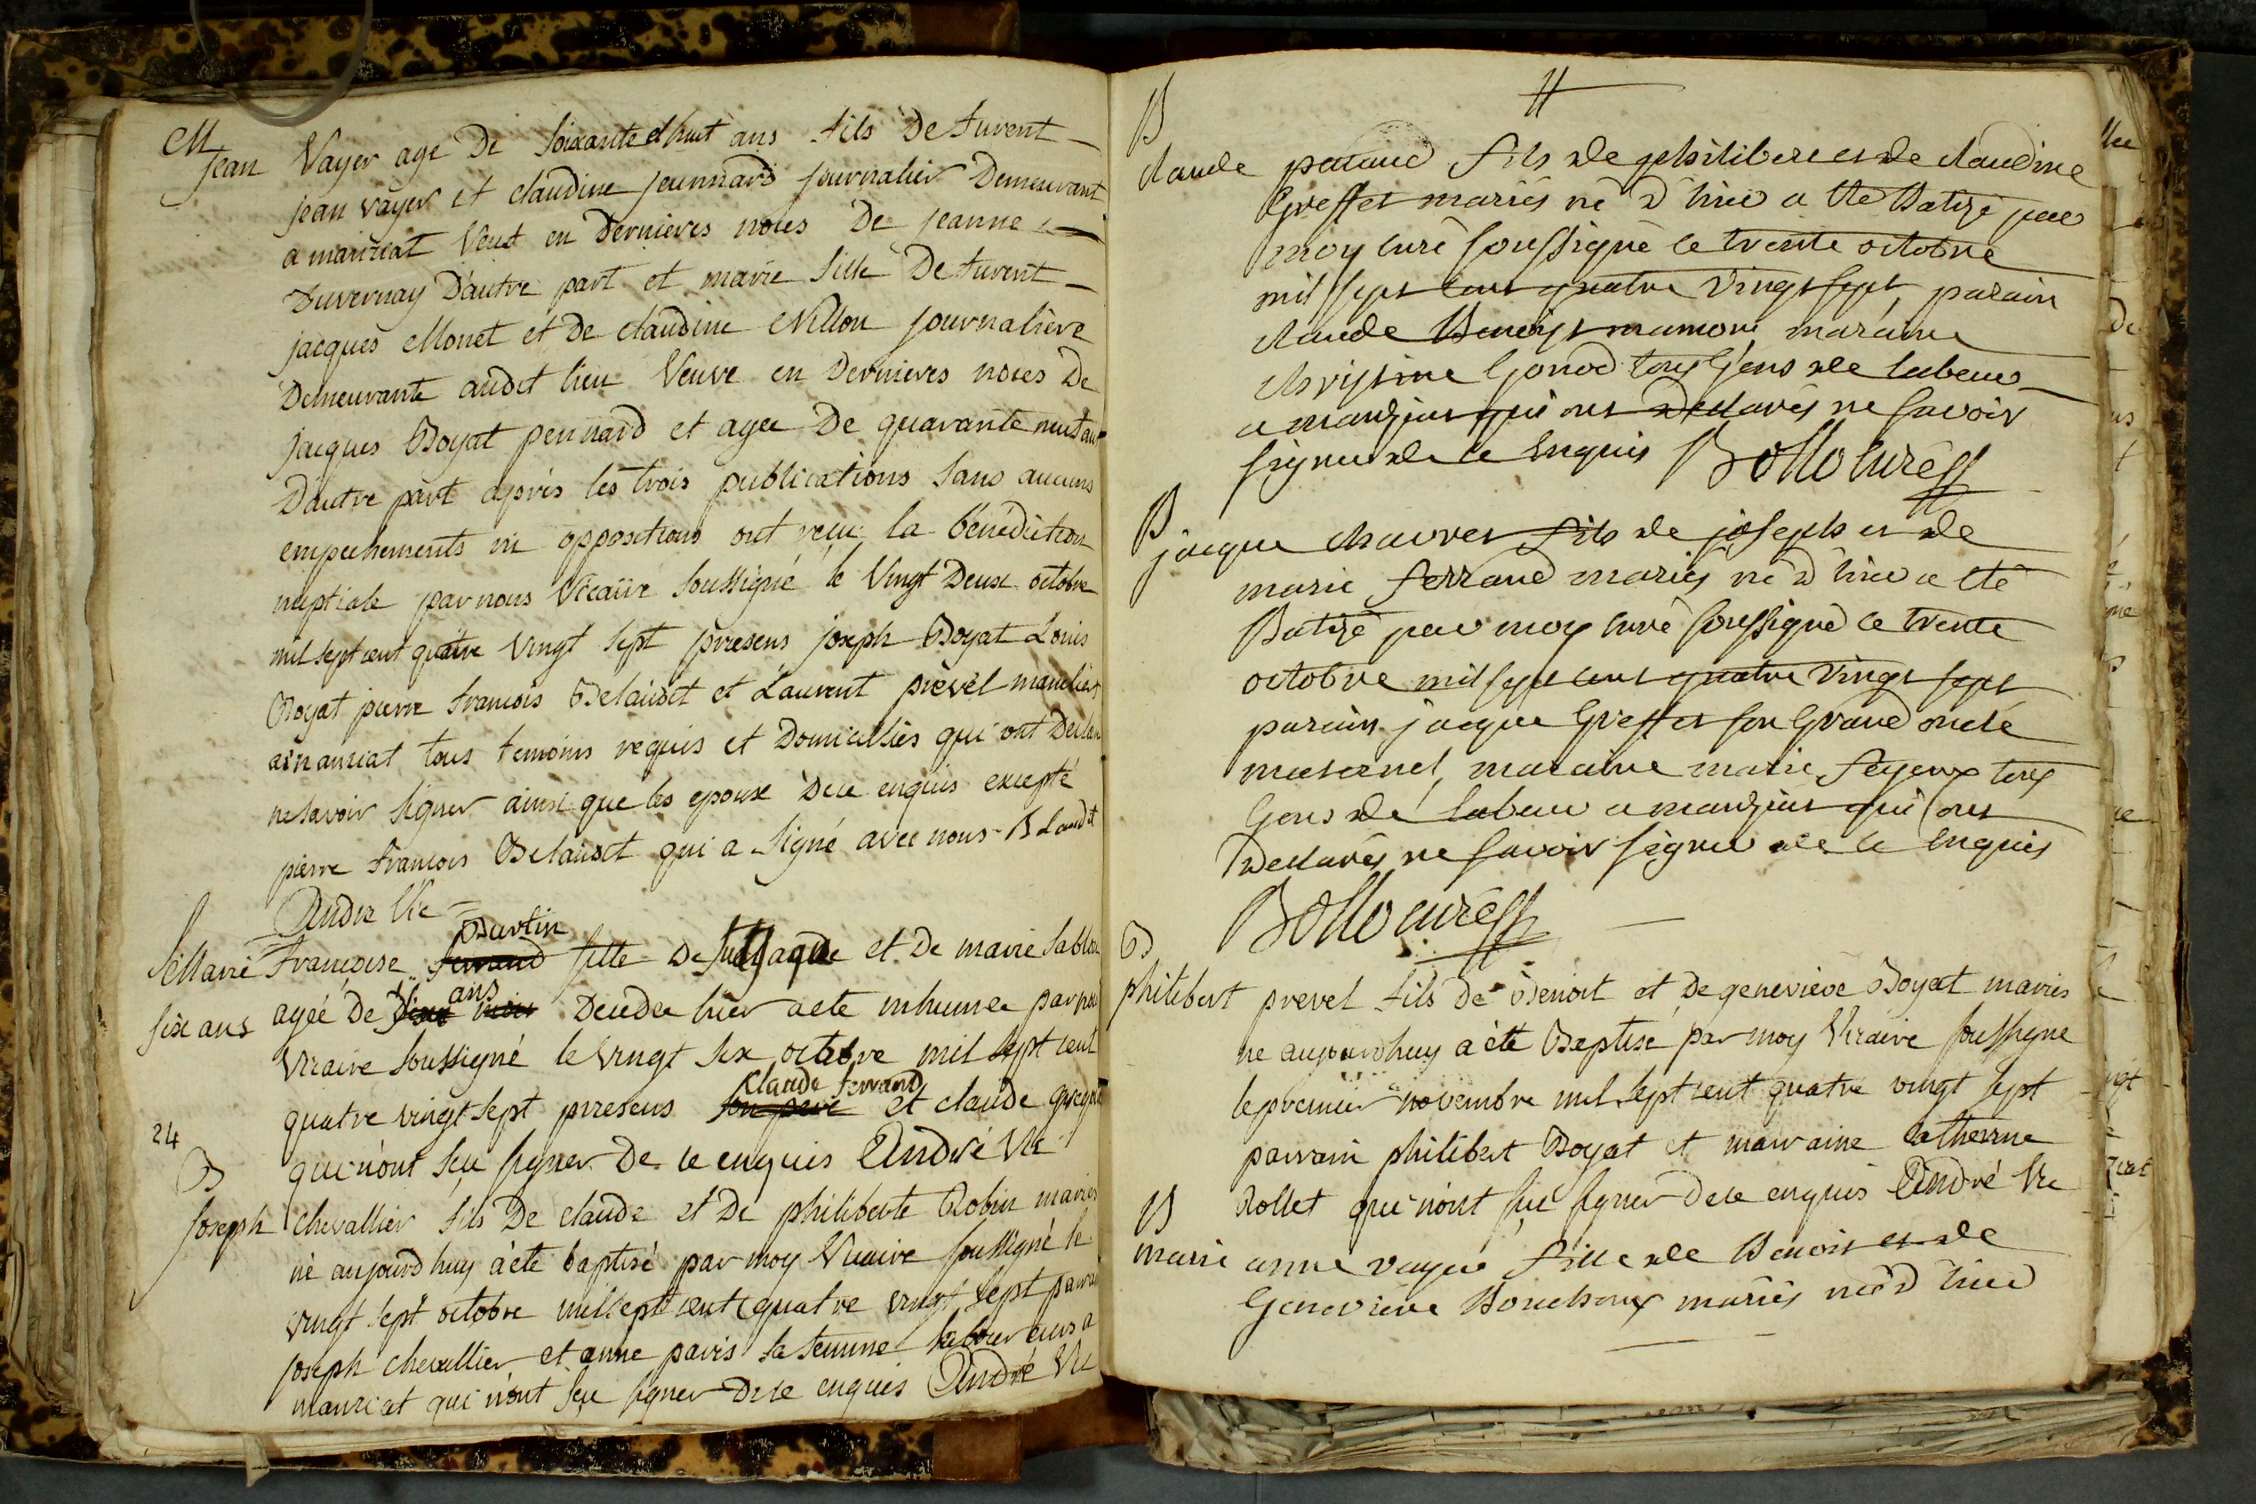 M
Jean Vayer agé De soixante et huit ans fils De furent
jean vayer et claudine jeunnard journalier Demeurant
a manziat Veuf en Dernieres noces De jeanne
Duvernay D'autre part et marie fille De furent
jacques Monet et de claudine Villon journaliere
Demeurante audit lieu Veuve en Dernieres noces De
jacques Boyat pennard et agée De quarante neuf ans
D'autre part apres les trois publications sans aucuns
empechements ni oppositions ont reçu la bénédiction
nuptiale par nous Vicaire soussigné le Vingt Deux octobre
mil sept cent quatre Vingt sept presens joseph Boyat Louis
Boyat pierre francois Belaudit et Laurent prevel
a manziat tous temoins requis et Domiciliés qui ont Declaré
ne savoir signer ainsi que les epoux De ce enquis excepté
pierre francois Belaudit qui a signé avec nous B Laudit
André Vic
S
Marie Françoise Burtin fille De et De marie sablon
six ans agée De ans Decedée hier a eté inhumée par nous
Vicaire soussigné le vingt six octobre mil sept cent
quatre vingt sept presens claude ferrand et claude
24
qui n'ont sçu signer De ce enquis André Vic
B
Joseph chevallier fils De claude et De philiberte Robin mariés
né aujourd'huy a eté baptisé par moy Vicaire soussigné le
vingt sept octobre mil sept cent quatre vingt sept parrain
joseph chevallier et anne pavis sa femme laboureurs a
manziat qui n'ont sçu signer De ce enquis André Vic
B
claude fils de philibert et de claudine
Greffet mariés né d'hier a été Batizé par
moy curé soussigné ce trente octobre
mil sept cent quatre vingt sept, parain
claude Benoist, maraine
christine Gonod tous Gens de labeur
a manziat qui ont Declarés ne savoir
signer de ce Enquis Bollo curé
B
jacque chavvet fils de joseph et de
marie ferrand mariés né d'hier a été
Batizé par moy curé soussigné ce trente
octobre mil sept cent quatre vingt sept
parain jacque Greffet son Grand oncle
maternel, maraine marie feyeux tous
Gens de labeur a manziat qui ont
Declarés ne savoir signer de ce Enquis
Bollo curé
B
philibert prevel fils de Benoit et de genevieve Boyat mariés
né aujourd'huy a été Baptisé par moy Vicaire soussigné
le premier novembre mil sept cent quatre vingt sept
parrain philibert Boyat et marraine catherine
Rollet qui n'ont sçu signer De ce enquis André Vic
B
marie anne vayer fille de Benoist et de
Genevieve Bouchoux mariés née d'hier